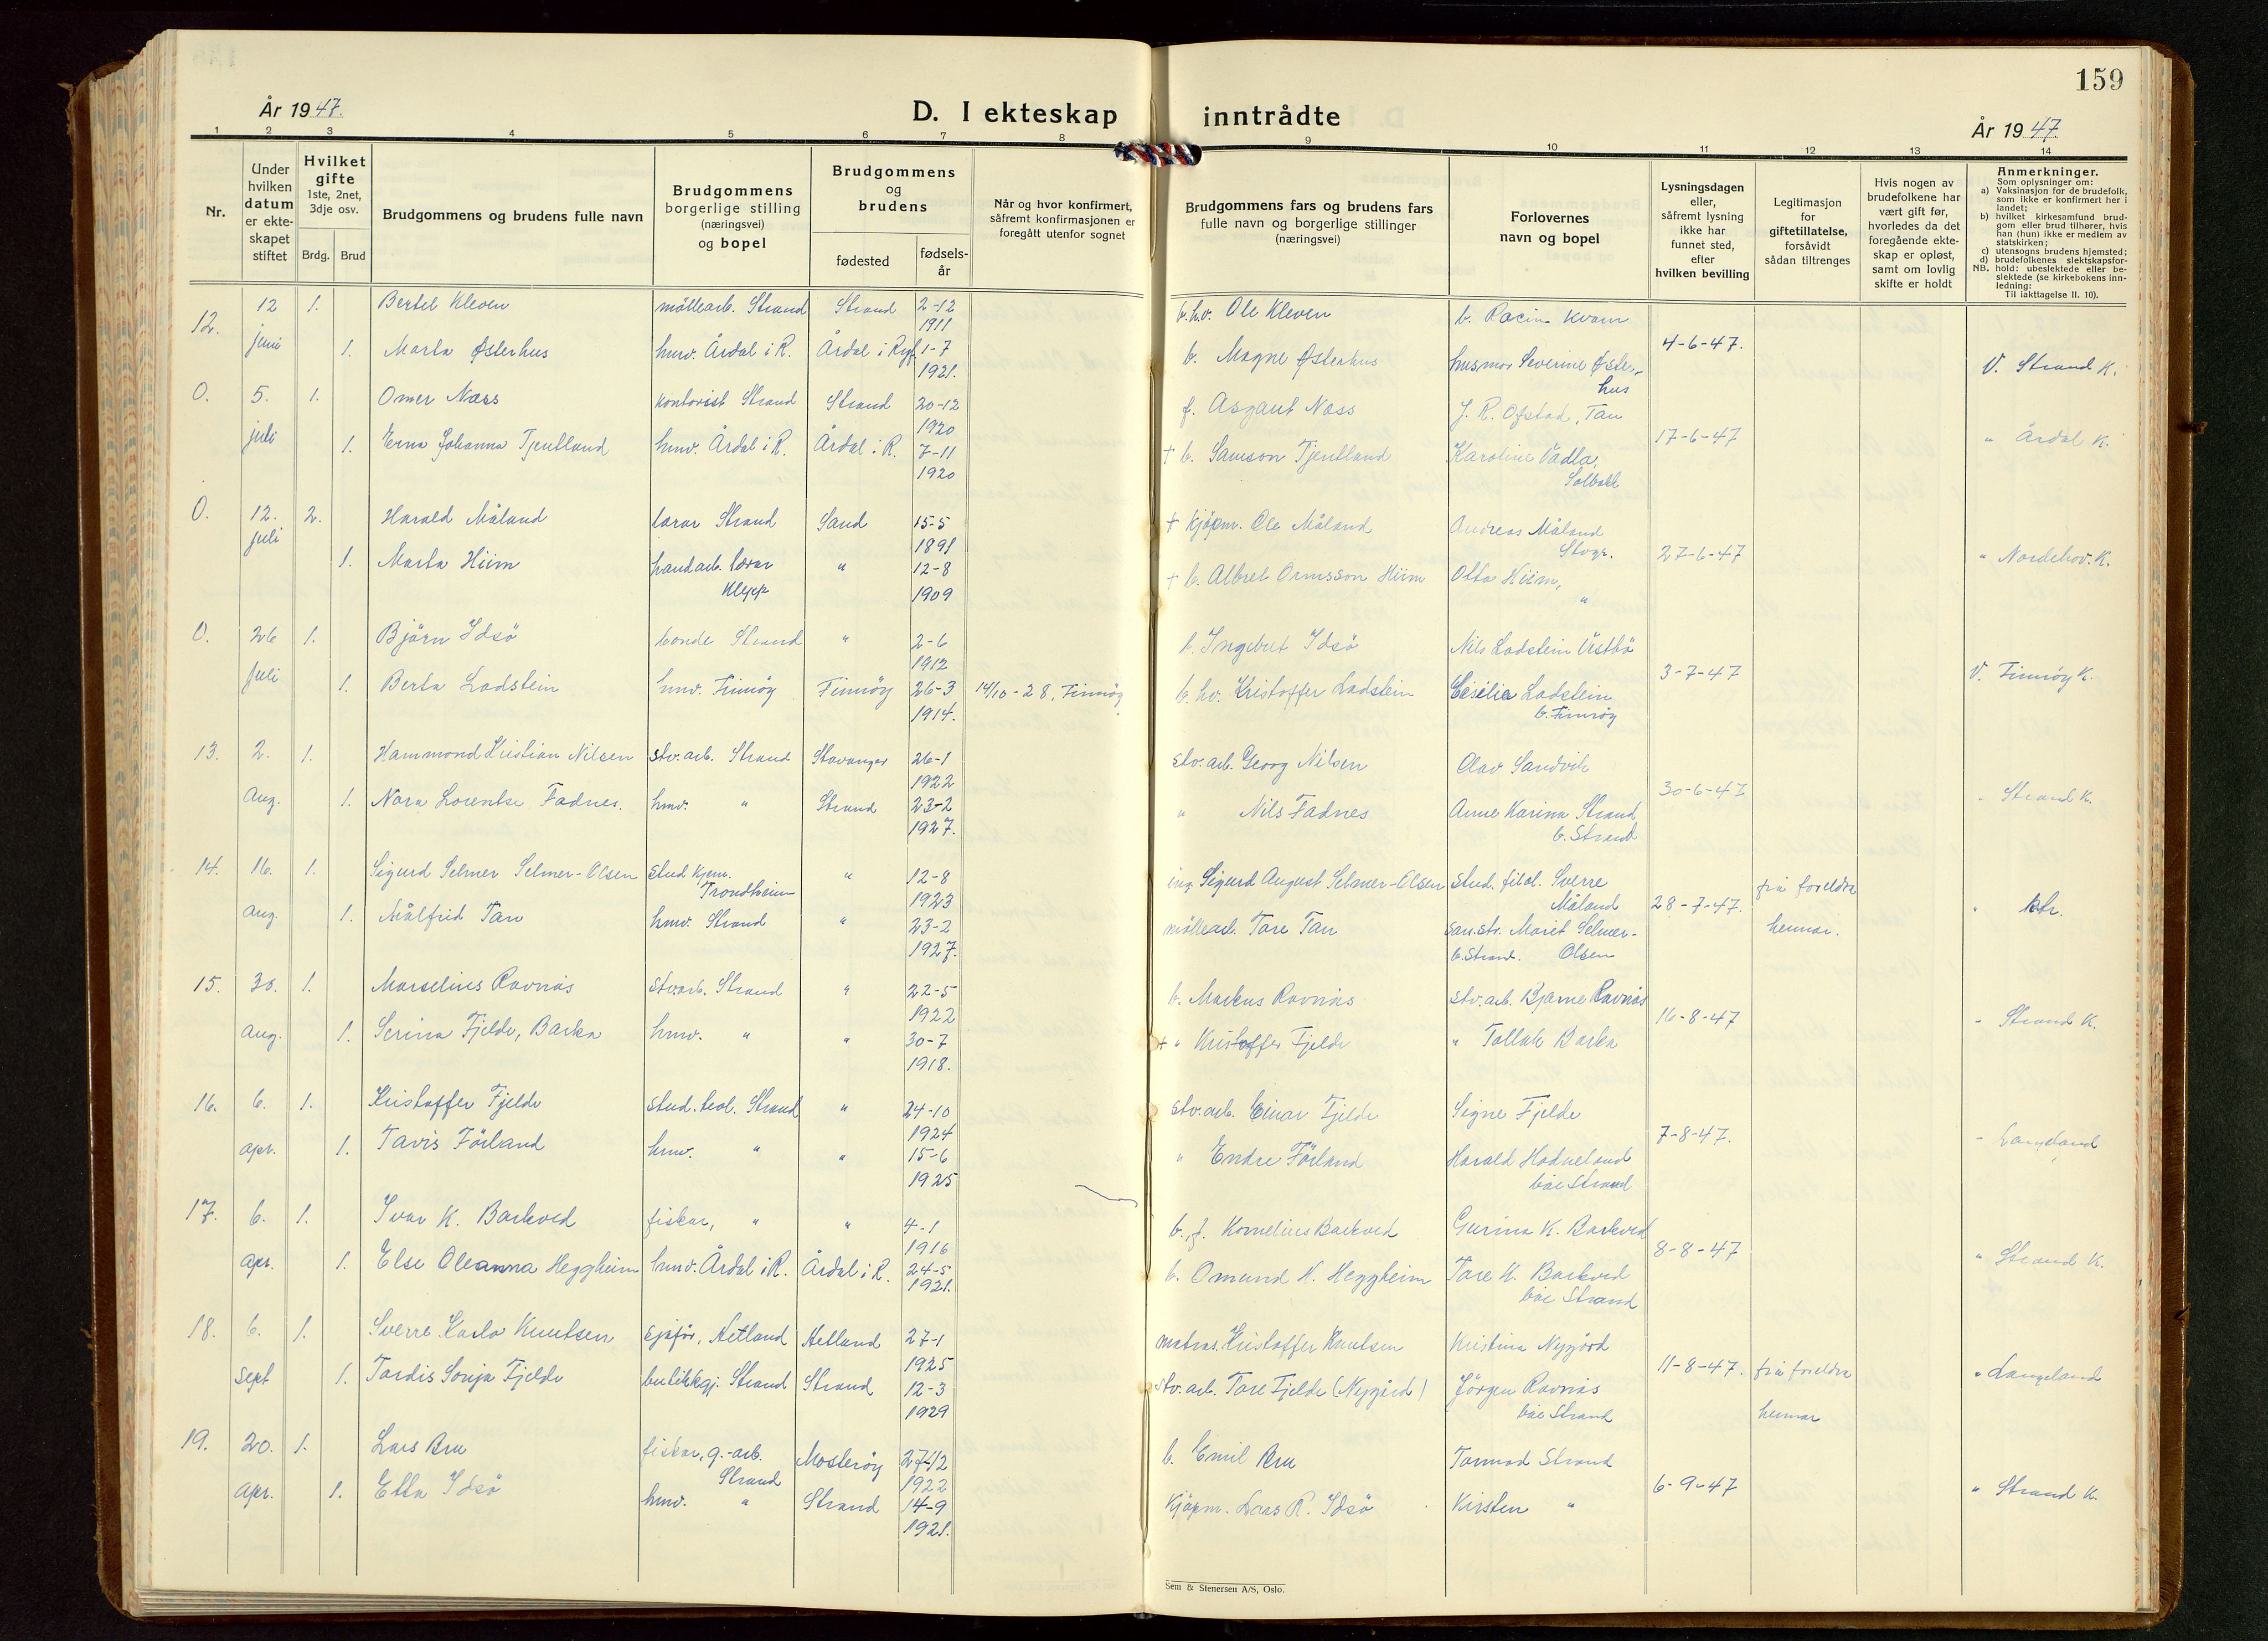 159
År 1947.
D. I ekteskap inntrådte
År 1947.
1 2 3 4 5 6 7 8 9 10 11 12 13 14
Nr.
Under hvilken datum er ekte-skapet stiftet
Hvilket gifte
1ste, 2net, 3dje osv.
Brdg. Brud
Brudgommens og brudens fulle navn
Brudgommens borgerlige stilling (næringsvei) og bopel
Brudgommens og brudens
fødested
fødsels-år
Når og hvor konfirmert, såfremt konfirmasjonen er foregått utenfor sognet
Brudgommens fars og brudens fars fulle navn og borgerlige stillinger (næringsvei)
Forlovernes navn og bopel
Lysningsdagen eller, såfremt lysning ikke har funnet sted, efter hvilken bevilling
Legitimasjon for giftetillatelse, forsåvidt sådan tiltrenges
Hvis nogen av brudefolkene har vært gift før, hvorledes da det foregående ekte-skap er opløst, samt om lovlig skifte er holdt
Anmerkninger.
Som oplysninger om:
a) Vaksinasjon for de brudefolk, som ikke er konfirmert her i landet;
b) hvilket kirkesamfund brud-gom eller brud tilhører, hvis han (hun) ikke er medlem av statskirken;
c) utensogns brudens hjemsted;
d) brudefolkenes slektskapsfor-hold: ubeslektede eller be-slektede (se kirkebokens inn-ledning:
NB.
Til iakttagelse II. 10).
12. 12 juni 1. Bertel Kleven møllearb. Strand Strand 2-12 1911 b.hv. Ole Kleven b. Kvam
1. Marta Østerhus hmv. Årdal i R. Årdal i Ryf. 1-7 1921. b. Magne Østerhus husmor Severine Øster-hus 4-6-47. V. Strand K.
0. 5. juli 1. Omer Næss kontorist Strand Strand 20-12 1920 f. Asgaut Næss J. R. Ofstad, Tau
1. Erna Johanna Tjentland hmv. Årdal i R. Årdal i R. 7-11 1920 + b. Samson Tjentland Karoline Vadla, Solbakk 17-6-47 " Årdal K.
0. 12. juli 2. Harald Måland lærar Strand Sand 15-5 1891 + kjøpm. Ole Måland Andreas Måland Stvgr.
1. Marta Hiim handarb. lærar Klepp " 12-8 1909 + b. Albret Ormsson Hiim Otto Hiim, " 27-6-47 " Norderhov. K.
0. 26 juli 1. Bjørn Idsø bonde Strand " 2-6 1912 b. Ingebret Idsø Nils Ladstein Vestbø
1. Berta Ladstein hmv. Finnøy Finnøy 26-3 1914. 14/10-28, Finnøy b. hv. Kristoffer Ladstein Cesilie Ladstein b. Finnøy 3-7-47 V. Finnøy K.
13. 2. Aug. 1. Hammond Kristian Nilsen stv.arb. Strand Stavanger 26-1 1922 stv.arb. Georg Nilsen Olav Sandvik
1. Nora Lorentse Fadnes. hmv. " Strand 23-2 1927. " Nils Fadnes Anne Karina Strand b. Strand 30-6-47 " Strand K.
14. 16. aug. 1. Sigurd Selmer Selmer-Olsen stud. kjem. Trondheim " 12-8 1923 ing. Sigurd August Selmer-Olsen stud. filol. Sverre Måland
1. Målfrid Tau hmv. Strand " 23-2 1927. møllearb. Tore Tau san.str. Marit Selmer-Olsen b. Strand. 28-7-47. frå foreldra hennar. " Str.
15. 30. aug. 1. Marselius Ravnås stv.arb. Strand " 22-5 1922 b. Markus Ravnås stv.arb. Bjarne Ravnås
1. Serina Fjelde, Barka hmv. " " 30-7 1918. + " Kristoffer Fjelde " Tollak Barka 16-8-47 " Strand K.
16. 6. apr. 1. Kristoffer Fjelde stud. teol. Strand " 24-10 1924 stv.arb. Einar Fjelde Signe Fjelde
1. Tavis Førland hmv. " " 15-6 1925 " Endre Førland Harald Hodneland båe Strand 7-8-47. " Langeland
17. 6. apr. 1. Ivar K. Barkved fiskar, " " 4-1 1916 b., f. Kornelius Barkved Gurina K. Barkved
1. Else Oleanna Heggheim hmv. Årdal i R. Årdal i R. 24-5 1921. b. Omund H. Heggheim Tore K. Barkved båe Strand 8-8-47 " Strand K.
18. 6. sept 1. Sverre Karlo Knutsen sjåfør, Hetland Hetland 27-1 1925 matros. Kristoffer Knutsen Kristina Nygård
1. Tordis Sonja Fjelde butikkgj. Strand Strand 12-3 1929 stv.arb. Tore Fjelde (Nygård) Jørgen Ravnås båe Strand 11-8-47. frå foreldra hennar " Langeland
19. 20. apr. 1. Lars Bru fiskar, g.-arb. Strand Mosterøy 27-12 1922 b. Emil Bru Tormod Strand
1. Etta Idsø hmv. " Strand 14-9 1921. kjøpm. Lars R. Idsø Kirsten " 6-9-47 " Strand K.
Sem & Stenersen A/S, Oslo.